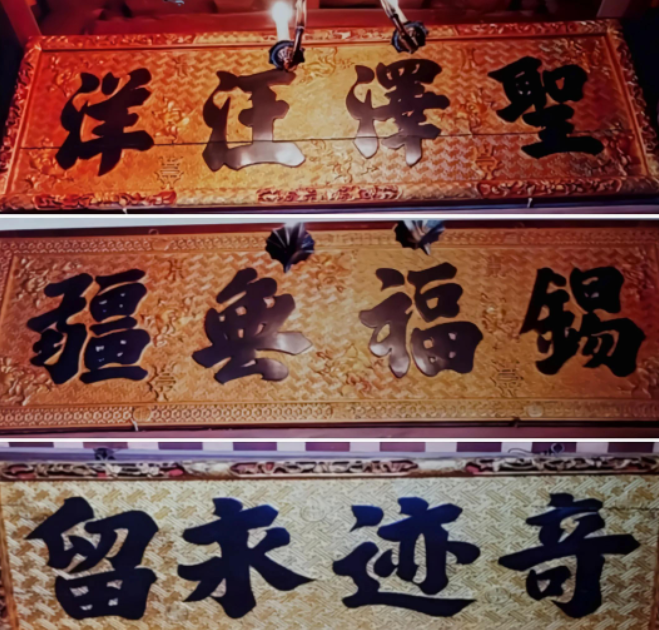 聖澤汪洋
錫福無疆
奇迹永留